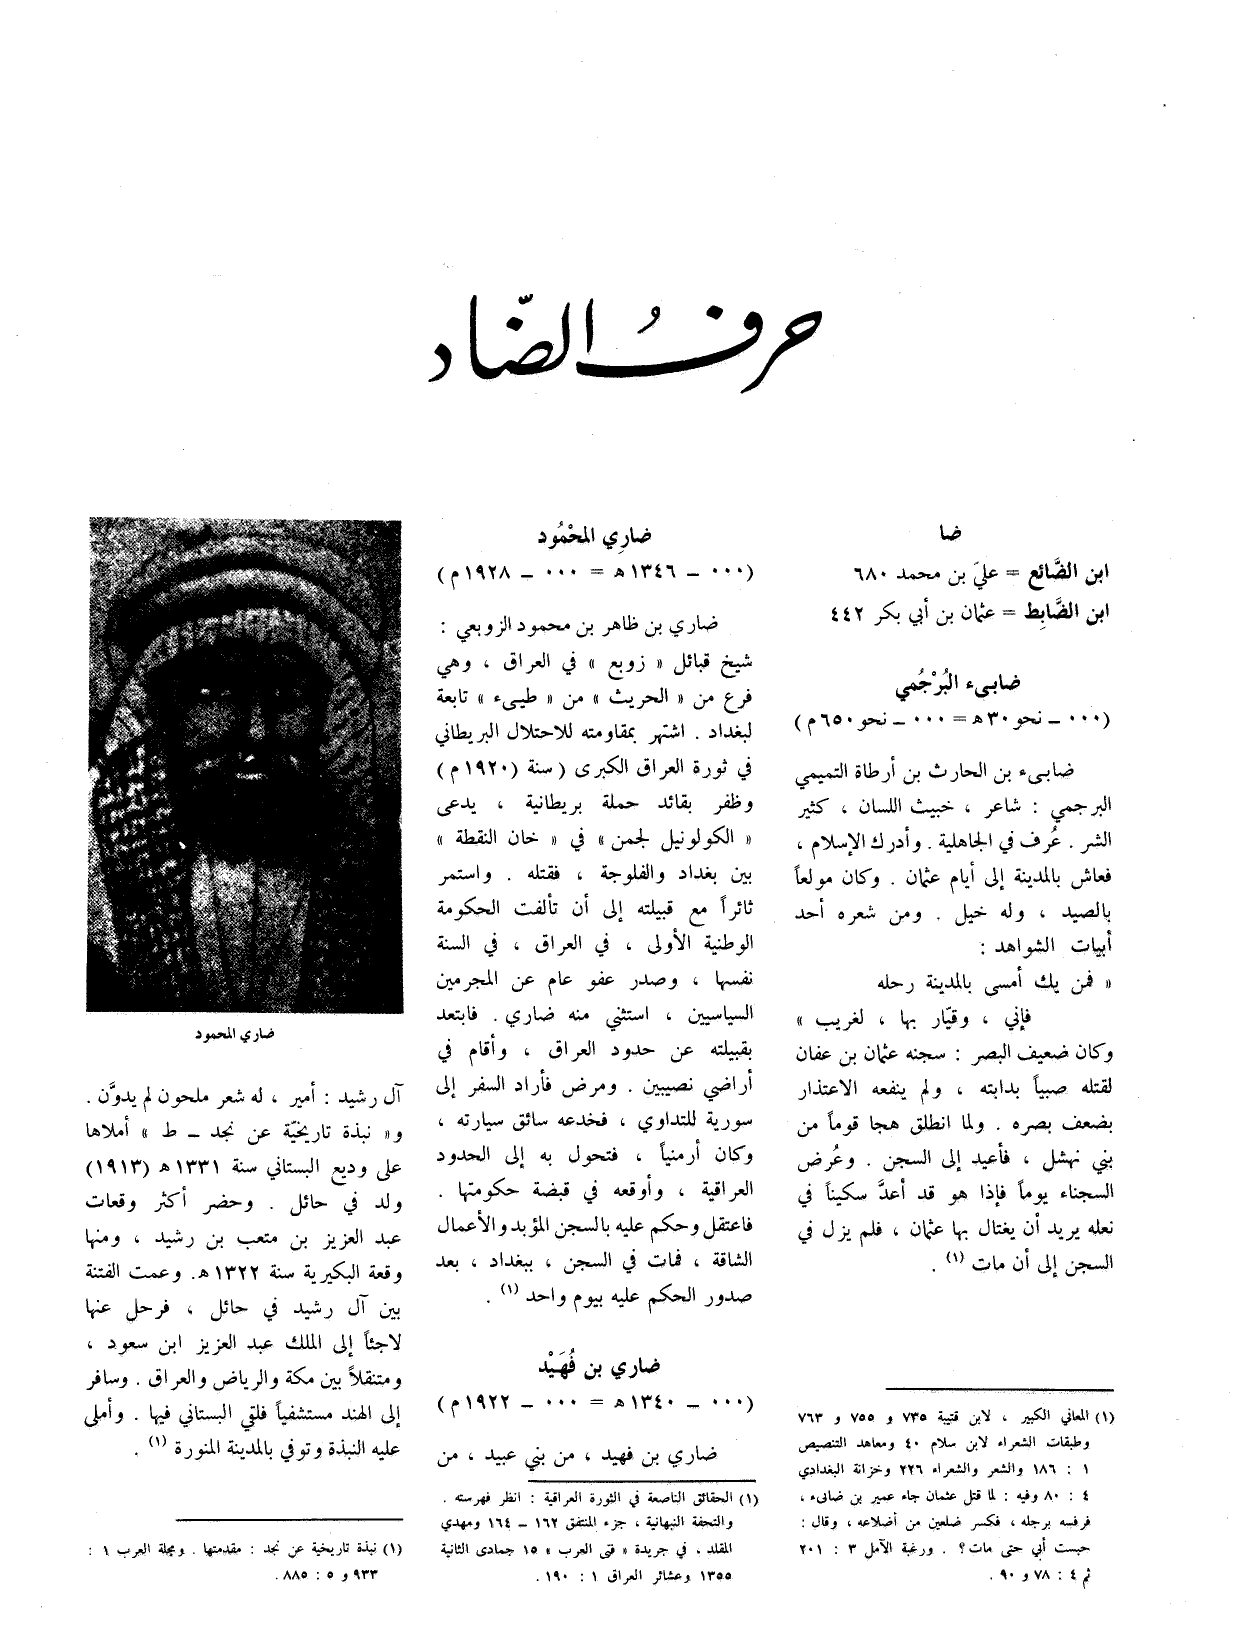 حرفُ الضّاد
ضا
ابن الضَّائع = عليّ بن محمد ٦٨٠
ابن الضَّابِط = عثمان بن أبي بكر ٤٤٢
ضابىء البُرْجُمي
(٠٠٠ – نحو ٣٠ هـ = ٠٠٠ – نحو ٦٥٠ م)
ضابىء بن الحارث بن أرطاة التميمي
البرجمي : شاعر ، خبيث اللسان ، كثير
الشر . عُرف في الجاهلية . وأدرك الإسلام ،
فعاش بالمدينة إلى أيام عثمان . وكان مولعاً
بالصيد ، وله خيل . ومن شعره أحد
أبيات الشواهد :
« فمن يك أمسى بالمدينة رحله
فإني ، وقيّار بها ، لغريب »
وكان ضعيف البصر : سجنه عثمان بن عفان
لقتله صبياً بدابته ، ولم ينفعه الاعتذار
بضعف بصره . ولما انطلق هجا قوماً من
بني نهشل ، فأعيد إلى السجن . وعُرض
السجناء يوماً فإذا هو قد أعدَّ سكيناً في
نعله يريد أن يغتال بها عثمان ، فلم يزل في
السجن إلى أن مات (١) .
(١) المعاني الكبير ، لابن قتيبة ٧٣٥ و ٧٥٥ و ٧٦٣
وطبقات الشعراء لابن سلام ٤٠ ومعاهد التنصيص
١ : ١٨٦ والشعر والشعراء ٢٢٦ وخزانة البغدادي
٤ : ٨٠ وفيه : لما قتل عثمان جاء عمير بن ضابىء ،
فرفسه برجله ، فكسر ضلعين من أضلاعه ، وقال :
حبست أبي حتى مات ؟ . ورغبة الآمل ٣ : ٢٠١
ثم ٤ : ٧٨ و ٩٠ .
ضارِي المَحْمُود
(٠٠٠ – ١٣٤٦ هـ = ٠٠٠ – ١٩٢٨ م)
ضاري بن ظاهر بن محمود الزوبعي :
شيخ قبائل « زوبع » في العراق ، وهي
فرع من « الحريث » من « طيىء » تابعة
لبغداد . اشتهر بمقاومته للاحتلال البريطاني
في ثورة العراق الكبرى (سنة (١٩٢٠ م)
وظفر بقائد حملة بريطانية ، يدعى
« الكولونيل لجمن » في « خان النقطة »
بين بغداد والفلوجة ، فقتله . واستمر
ثائراً مع قبيلته إلى أن تألفت الحكومة
الوطنية الأولى ، في العراق ، في السنة
نفسها ، وصدر عفو عام عن المجرمين
السياسيين ، استثني منه ضاري . فابتعد
بقبيلته عن حدود العراق ، وأقام في
أراضي نصيبين . ومرض فأراد السفر إلى
سورية للتداوي ، فخدعه سائق سيارته ،
وكان أرمنياً ، فتحول به إلى الحدود
العراقية ، وأوقعه في قبضة حكومتها .
فاعتقل وحكم عليه بالسجن المؤبد والأعمال
الشاقة ، فمات في السجن ، ببغداد ، بعد
صدور الحكم عليه بيوم واحد (١) .
ضاري بن فُهَيْد
(٠٠٠ – ١٣٤٠ هـ = ٠٠٠ – ١٩٢٢ م)
ضاري بن فهيد ، من بني عبيد ، من
(١) الحقائق الناصعة في الثورة العراقية : انظر فهرسته .
والتحفة النبهانية ، جزء المنتفق ١٦٢ – ١٦٤ ومهدي
المقلد ، في جريدة « فتى العرب » ١٥ جمادى الثانية
١٣٥٥ وعشائر العراق ١ : ١٩٠ .
ضاري المحمود
آل رشيد : أمير ، له شعر ملحون لم يدوَّن .
و« نبذة تاريخيّة عن نجد – ط » أملاها
على وديع البستاني سنة ١٣٣١ هـ (١٩١٣)
ولد في حائل . وحضر أكثر وقعات
عبد العزيز بن متعب بن رشيد ، ومنها
وقعة البكيرية سنة ١٣٢٢ هـ. وعمت الفتنة
بين آل رشيد في حائل ، فرحل عنها
لاجئاً إلى الملك عبد العزيز ابن سعود ،
ومتنقلاً بين مكة والرياض والعراق . وسافر
إلى الهند مستشفياً فلقي البستاني فيها . وأملى
عليه النبذة وتوفي بالمدينة المنورة (١) .
(١) نبذة تاريخية عن نجد : مقدمتها . ومجلة العرب ١ :
٩٣٣ و ٥ : ٨٨٥ .